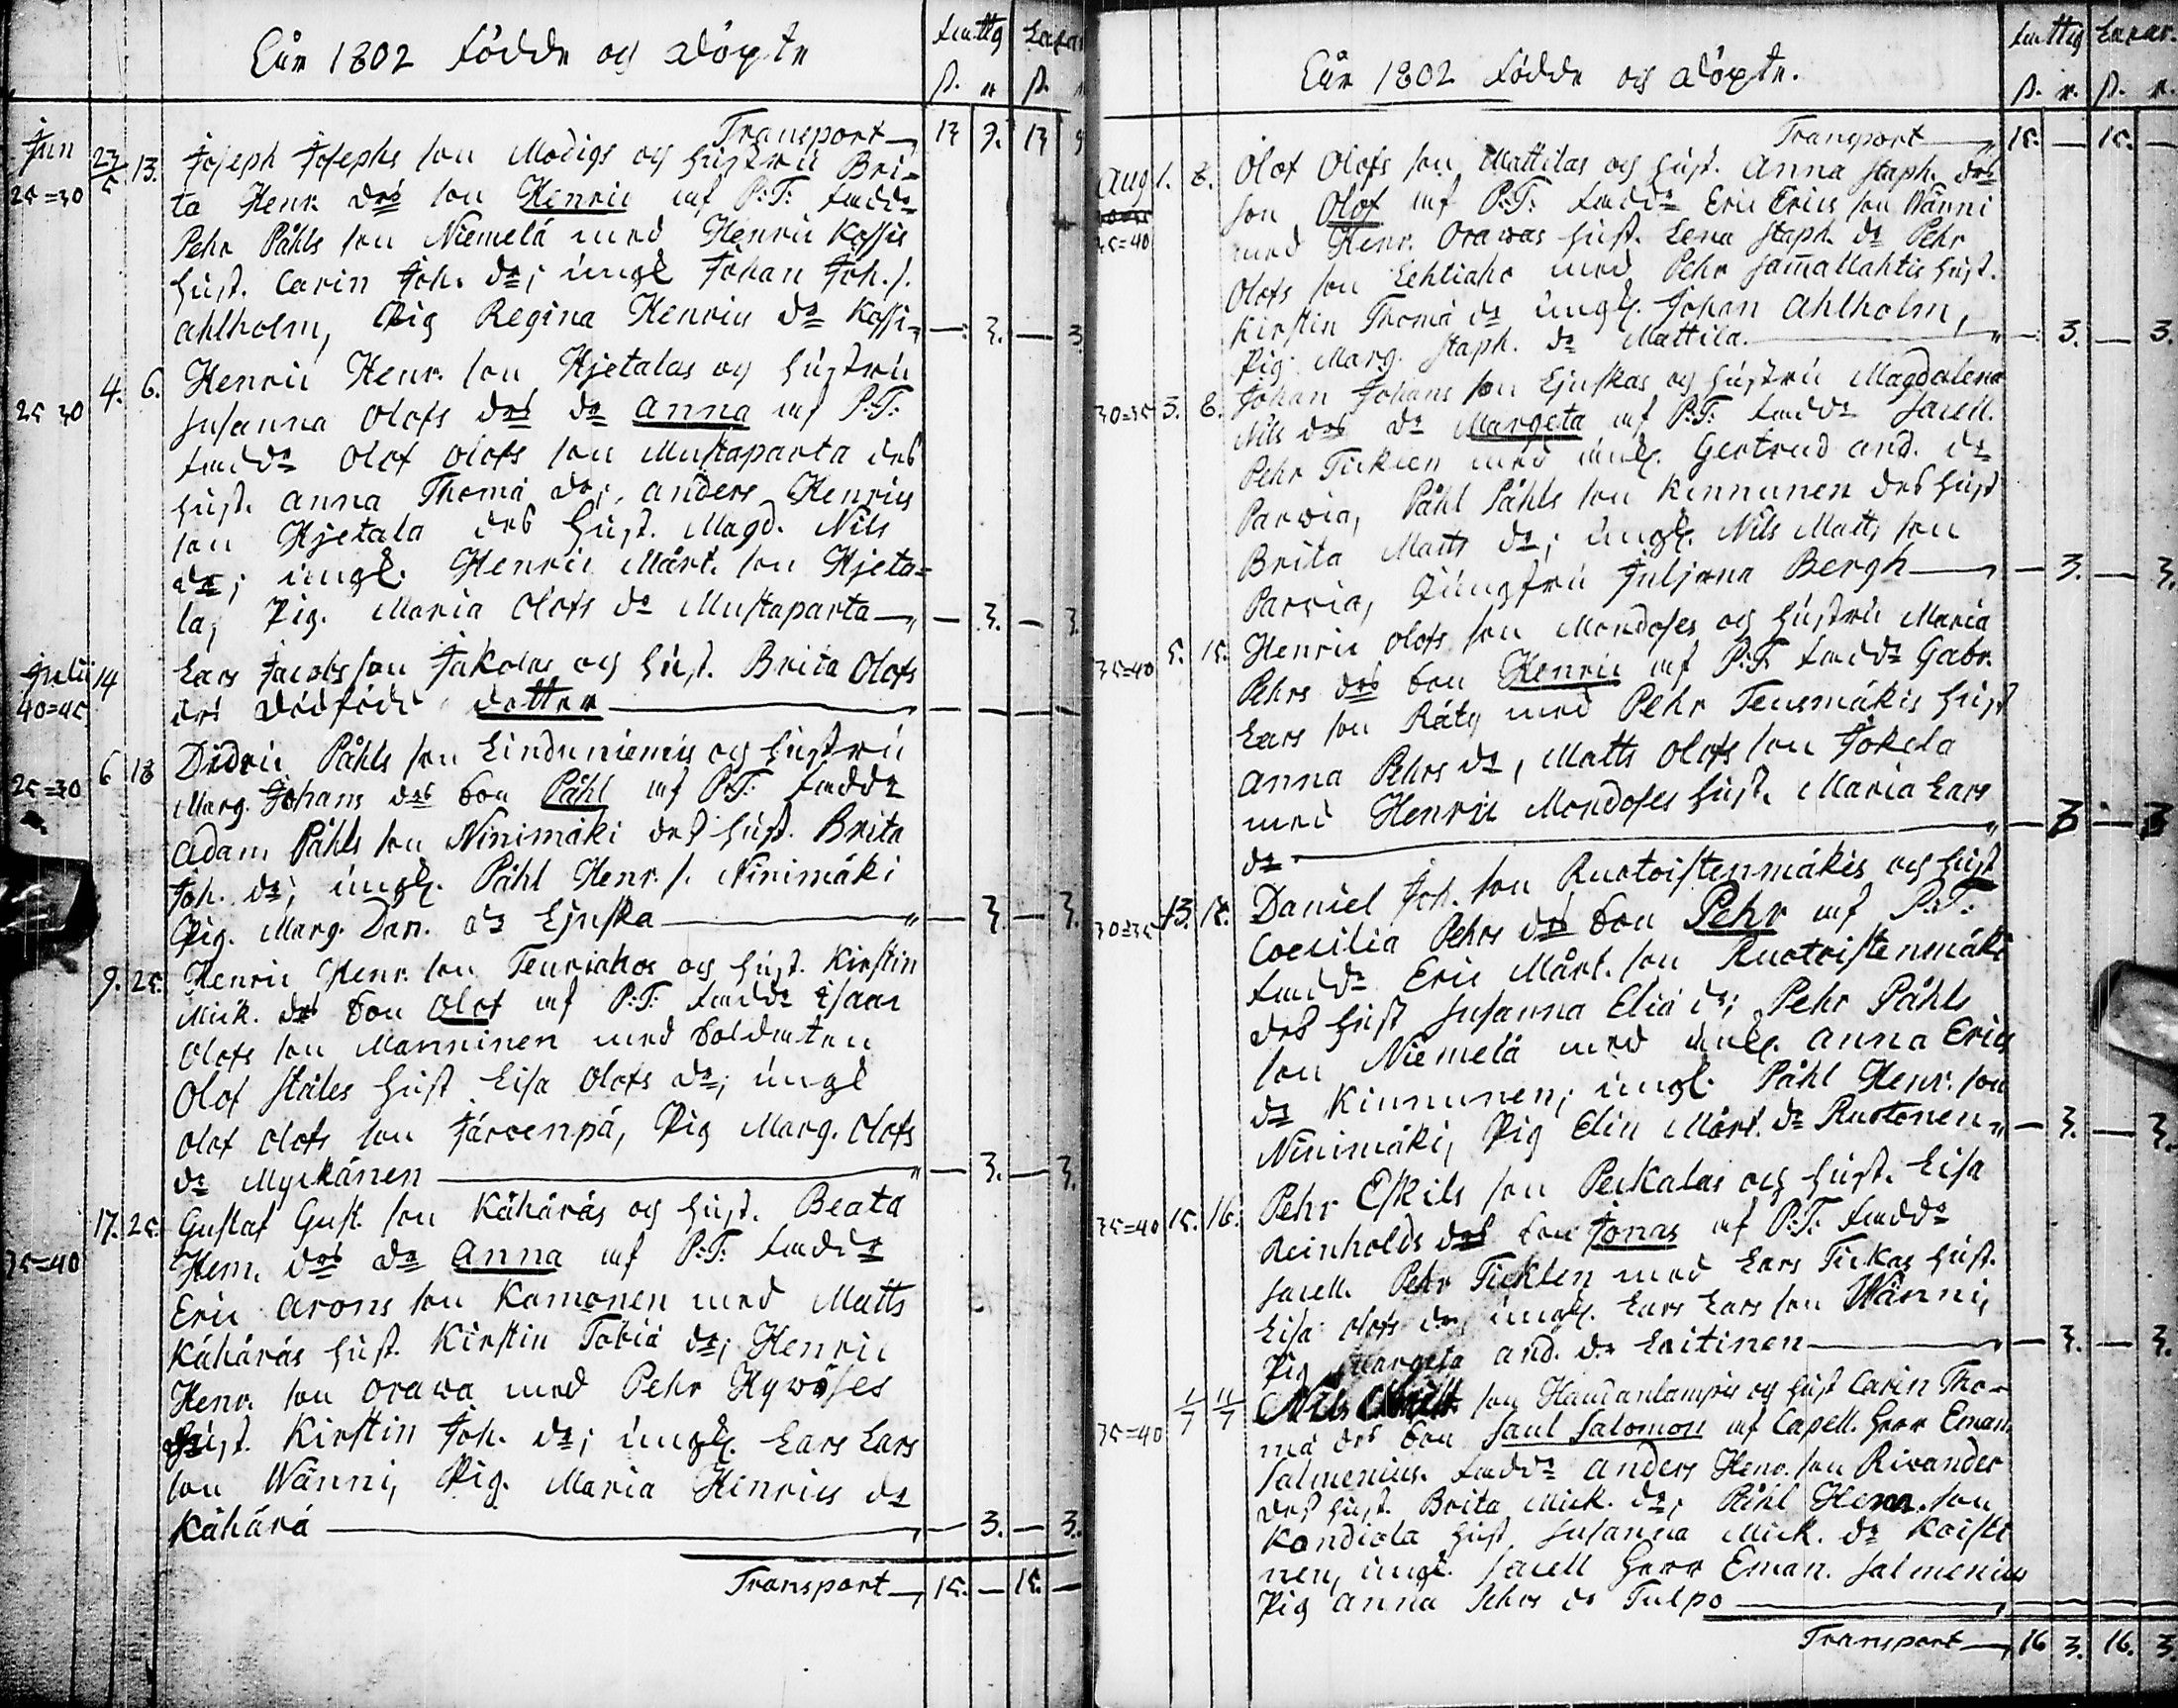 Åår 1802 Födde och Döpte
Fattig Lasar.
ß. r ß.
Transport 13 9. 13 9
Jun 27/5 13. Joseph Josephs son Modigs och hustru Bri-
25=30 ta Henr. drs son Henric af P:T: Fadd:
Pehr Påhls son Niemelä med Henric Kossis
hust. Carin Joh. dr; ungk Johan Joh. s.
Ahlholm, Pig Regina Henrics dr Kossi — 3. — 3.
4. 6. Henric Henr. son Hjetalas och hustru
25 30 Susanna Olofs drs dr Anna af P:T:
Fadd: Olof Olofs son Mustaparta des
hust. Anna Thoma dr; Anders Henrics
son Hjetala des hust. Magd. Nils
dr; ungk. Henric Mårt. son Hjeta=
la, Pig. Maria Olofs dr Mustaparta — 3. — 3.
Julii 14 Lars Jacobs son Jakolas och hust. Brita Olofs
40=45 drs dödfödd dotter — — — —
6 18 Didric Påhls son Linduniemis och hustru
25=30 Marg. Johans drs son Påhl af P:T: Fadd:
Adam Påhls son Ninimäki des hust. Brita
Joh. dr; ungk. Påhl Henr. s. Ninimäki
Pig. Marg. Dan. dr Ljuska — 3. — 3.
9. 25. Henric Henr. son Teuriahos och hust. Kirstin
Mick. drs son Olof af P:T: Fadd: Isaac
Olofs son Manninen med Soldaten
Olof Ståles hust Lisa Olofs dr; ungk
Olof Olofs son Järvenpä, Pig Marg. Olofs
dr Myckänen — 3. — 3.
17. 25. Gustaf Gust. son Kähäräs och hust. Beata
35=40 Hem. drs dr Anna af P:T: Fadd:
Eric Arons son Komonen med Matts
Kähäräs hust. Kirstin Tobiä dr; Henric
Henr. son Orawa med Pehr Hywöses
hust. Kirstin Joh. dr; ungk. Lars Lars
son Wänni, Pig. Maria Henrics dr
Kähärä — 3. — 3.
Transport 15. — 15. —
Åår 1802 Födde och Döpte.
Fattig Lasar.
ß. r. ß. r.
Transport 15. — 15. —
Aug 1. 8. Olof Olofs son Mattilas och hust. Anna Staph. drs
35=40 son Olof af P:T: Fadd: Eric Erics son Wänni
med Henr. Orawas hust. Lena Staph. dr Pehr
Olofs son Lehtiaho med Pehr Sam̄allahtis hust.
Kirstin Thomä dr ungk. Johan Ahlholm,
Pig Marg. Staph. dr Mattila. — 3. — 3.
30=35 3. 8. Johan Johans son Ljuskas och hustru Magdalena
Nils drs dr Margeta af P:T: Fadd: Sacell.
Pehr Ticklen med enk. Gertrud And. dr
Parvia, Påhl Påhls son Kinnunen des hust
Brita Matts dr; ungk. Nils Matts son
Parvia, Jungfru Juljana Bergh — 3. — 3.
35=40 5. 15. Henric Olofs son Mondoses och hustru Maria
Pehrs drs son Henric af P:T: Fadd: Gabr.
Lars son Räty med Pehr Tensmäkis hust
Anna Pehrs dr, Matts Olofs son Jokela
med Henric Mondoses hust. Maria Lars
dr. — 3 — 3
30=35 13. 15. Daniel Joh. son Ruotoistenmäkis och hust
Coecilia Pehrs drs son Pehr af P:T:
Fadd: Eric Mårt. son Ruotoistenmäki
des hust Susanna Eliä dr; Pehr Påhls
son Niemelä med enk. Anna Erics
dr Kinnunen; ungk. Påhl Henr. son
Ninimäki, Pig Elin Mårt. dr Ruotonen — 3. — 3.
35=40 15. 16. Pehr Eskils son Peckalas och hust. Lisa
Reinholds drs son Jonas af P:T: Fadd:
Sacell. Pehr Ticklen med Lars Tickas hust.
Lisa Olofs dr; ungk. Lars Lars son Wänni,
Pig Margeta And. dr Leitinen — 3. — 3.
35=40 1/7 11/7 Nils son Haudanlampis och hust Carin Tho-
mä drs son Saul Salomon af Capell. Herr Eman.
Salmenius. Fadd: Anders Henr. son Rivander
des hust. Brita Mick. dr; Påhl Hem. son
Kondiola hust. Susanna Mick. dr Koisti
nen, ungk. Sacell Herr Eman. Salmenius
Pig Anna Pehrs dr Tulpo
Transport 16 3. 16. 3.